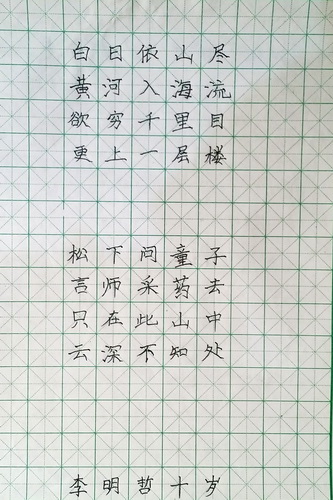 白日依山尽
黄河入海流
欲穷千里目
更上一层楼
松下问童子
言师采药去
只在此山中
云深不知处
李明哲十岁